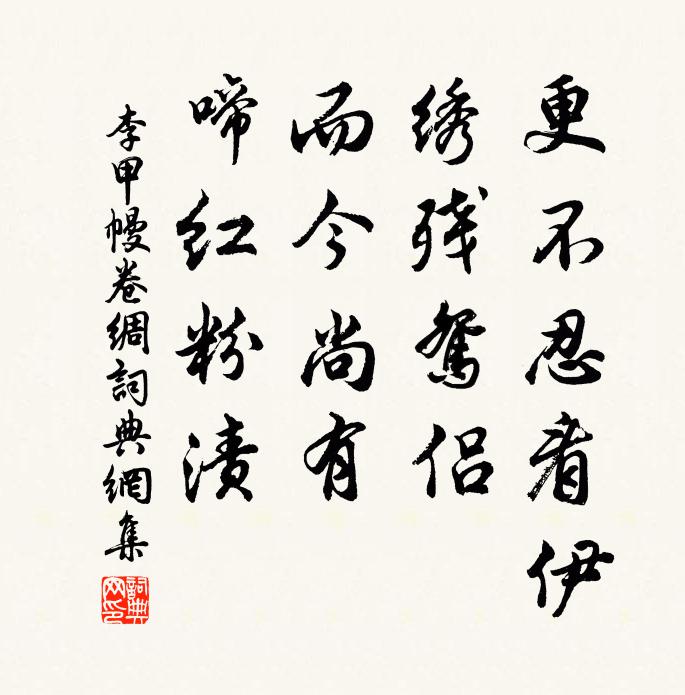 更不忍看伊
绣残鸳侣
而今尚有
啼红粉渍
李甲幔卷绸詞典網集
詞典網印